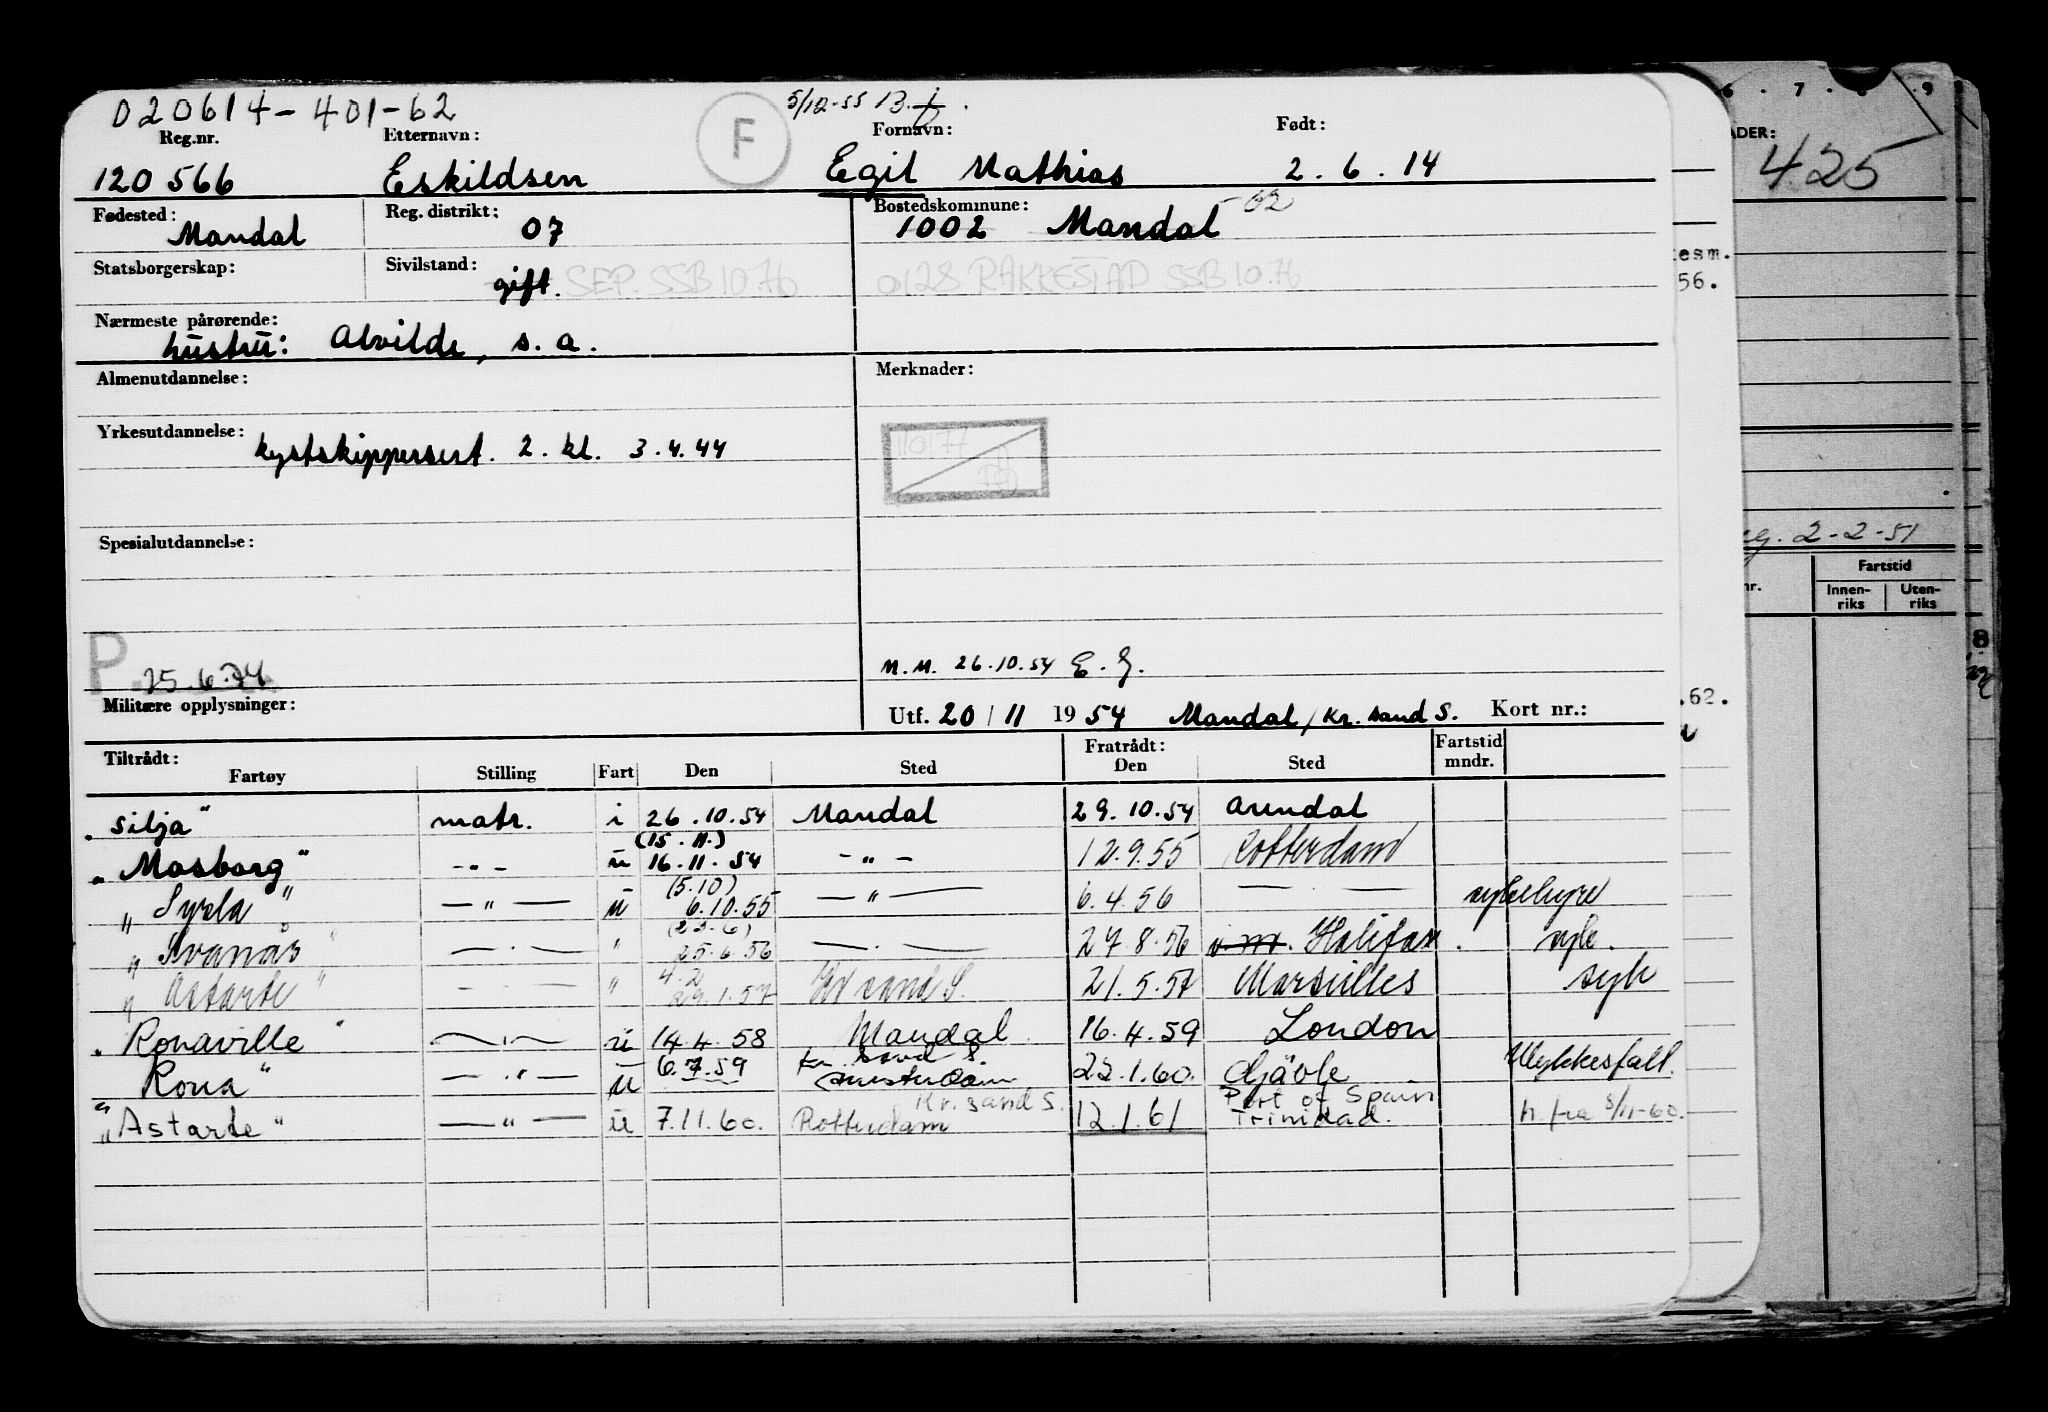 020614-401-62 5/12-55
Reg.nr. Etternavn: F Fornavn: Født:
120 566 Eskildsen Egil Mathias 2.6.14
Fødested: Mandal Reg. distrikt: 07 Bostedskommune: 1002 Mandal -02
Statsborgerskap: Sivilstand: gift. SEP. SSB 10.76 0128 RAKKESTAD SSB 10.76
Nærmeste pårørende:
hustru: Alvilde, s. a.
Almenutdannelse: Merknader:
Yrkesutdannelse: kystskippersert. 2. kl. 3.4.44
110177
Spesialutdannelse:
P. 25.6.74 M.M. 26.10.54 E.J.
Militære opplysninger: Utf. 20/11 1954 Mandal/Kr.sand S. Kort nr.:
Tiltrådt: Fratrådt: Fartstid
Fartøy Stilling Fart Den Sted Den Sted mndr.
"Silja" matr. i 26.10.54 Mandal 29.10.54 Arendal
(15.11.)
"Mosborg" -"- u 16.11.54 -"- 12.9.55 Rotterdam
(5.10)
"Syrla" -"- u 6.10.55 -"- 6.4.56 - - sykehyre
(23.6)
"Svanås" -"- " 25.6.56 - - 27.8.56 Halifax. syk.
4.2
"Astarte" -"- " 29.1.57 Kr sand S. 21.5.57 Marseilles syk
"Ronaville" -"- u 14.4.58 Mandal 16.4.59 London
Kr. sand S.
"Rona" -"- u 6.7.59 Amsterdam 22.1.60. Gjävle Ulykkesfall.
Kr. sand S. Port of Spain
"Astarte" -"- u 7.11.60. Rotterdam 12.1.61 Trinidad. h. fra 5/11-60.
6 . 7 . 8 . 9
ADER:
425
esm.
56.
2-2-51
Fartstid
nr. Innen-riks Uten-riks
8
.62.